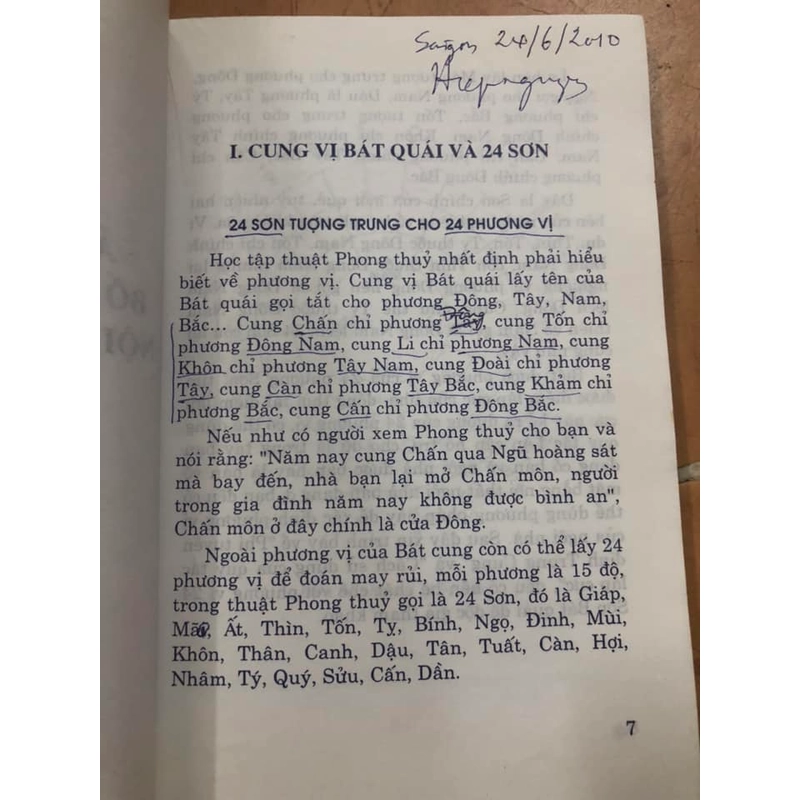 Saigon 24/6/2010
Hiepnguyen
I. CUNG VỊ BÁT QUÁI VÀ 24 SƠN
24 SƠN TƯỢNG TRƯNG CHO 24 PHƯƠNG VỊ
Học tập thuật Phong thuỷ nhất định phải hiểu
biết về phương vị. Cung vị Bát quái lấy tên của
Bát quái gọi tắt cho phương Đông, Tây, Nam,
Đông
Bắc... Cung Chấn chỉ phương Tây, cung Tốn chỉ
phương Đông Nam, cung Li chỉ phương Nam, cung
Khôn chỉ phương Tây Nam, cung Đoài chỉ phương
Tây, cung Càn chỉ phương Tây Bắc, cung Khảm chỉ
phương Bắc, cung Cấn chỉ phương Đông Bắc.
Nếu như có người xem Phong thuỷ cho bạn và
nói rằng: "Năm nay cung Chấn qua Ngũ hoàng sát
mà bay đến, nhà bạn lại mở Chấn môn, người
trong gia đình năm nay không được bình an",
Chấn môn ở đây chính là cửa Đông.
Ngoài phương vị của Bát cung còn có thể lấy 24
phương vị để đoán may rủi, mỗi phương là 15 độ,
trong thuật Phong thuỷ gọi là 24 Sơn, đó là Giáp,
Mão, Ất, Thìn, Tốn, Tỵ, Bính, Ngọ, Đinh, Mùi,
Khôn, Thân, Canh, Dậu, Tân, Tuất, Càn, Hợi,
Nhâm, Tý, Quý, Sửu, Cấn, Dần.
7